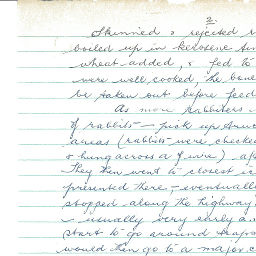 2.
Skinned & rejected r
boiled up in kerosene tin
wheat added, & fed to
were well cooked, the bone
be taken out before feed
As more rabbiters
of rabbits — pick up truc
areas (rabbits were checked
& hung across a ) af
They then went to closest
presented there, – eventuall
stopped along the highway
– usually very early
start to go around traps
would then go to a major c